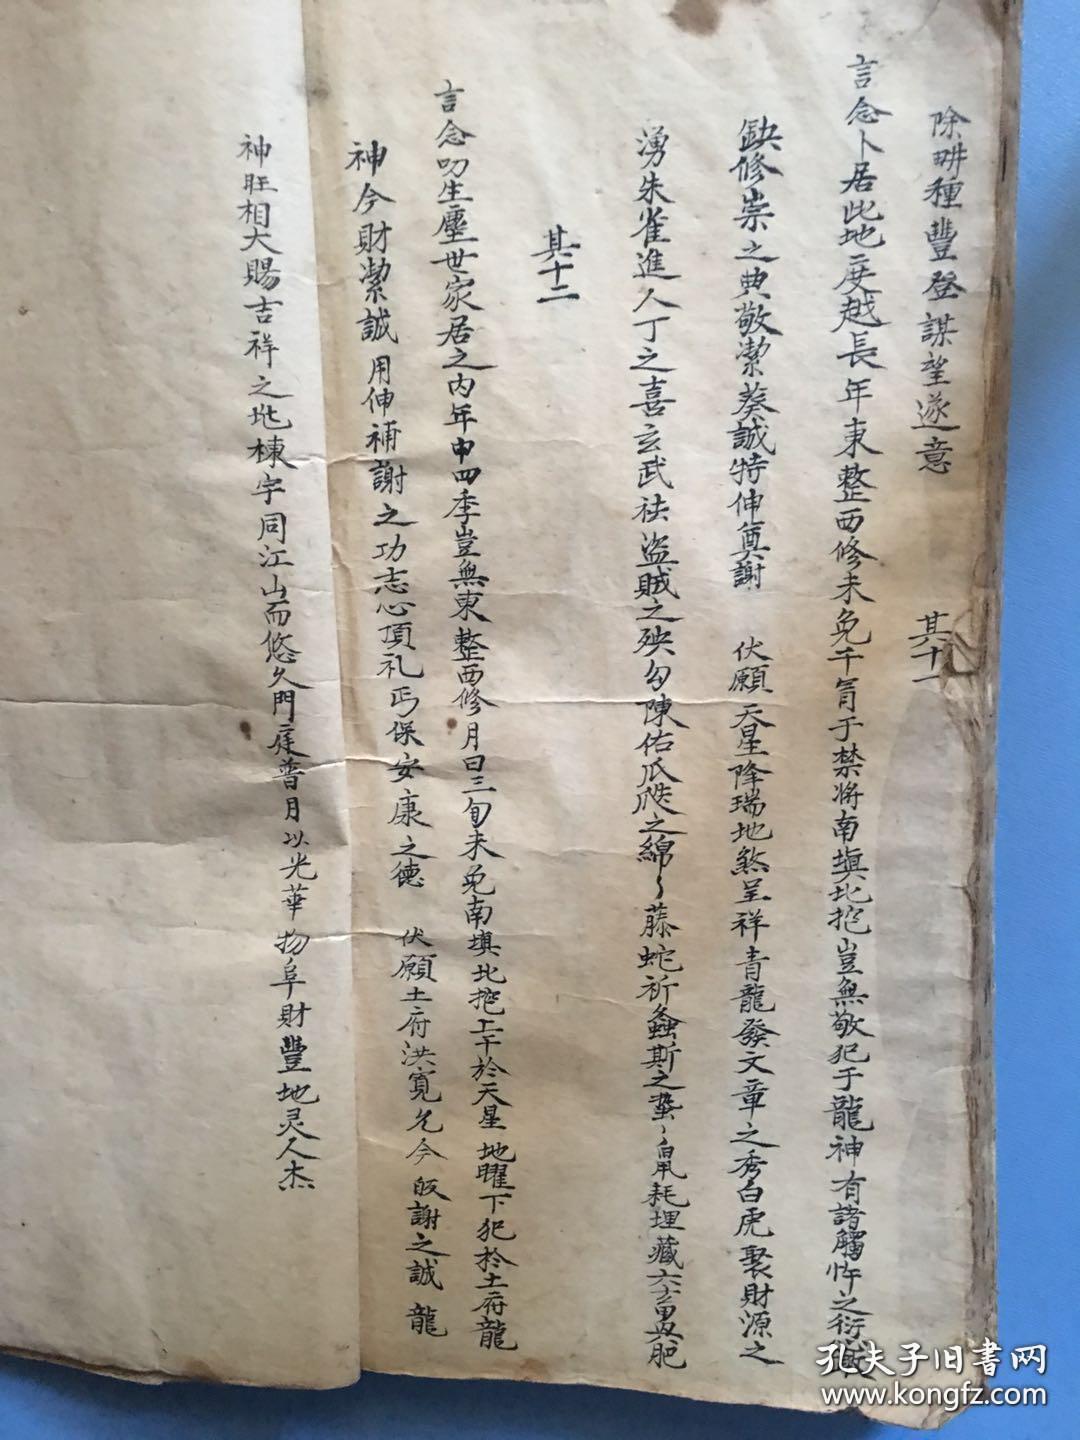 除耕種豐登謀望遂意
其十一
言念卜居此地度越長年東整西修未免干冐于禁將南填北挖豈無敬犯于龍神有諸觸忤之衍
缺修崇之典敬潔葵誠特伸奠謝 伏願天星降瑞地煞呈祥青龍發文章之秀白虎聚財源之
湧朱雀進人丁之喜玄武祛盜賊之殃勾陳佑瓜瓞之綿〻藤蛇祈螽斯之蟄〻鼠耗埋藏六畜興肥
其十二
言念叨生塵世家居之內年中四季豈無東整西修月日三旬未免南填北挖上干於天星地曜下犯於土府龍
神今財潔誠用伸補謝之功志心頂礼丐保安康之德 伏願土府洪寬允今皈謝之誠龍
神旺相大賜吉祥之地棟宇同江山而悠久門庭普月以光華物阜財豐地灵人杰
孔夫子旧書网
www.kongfz.com